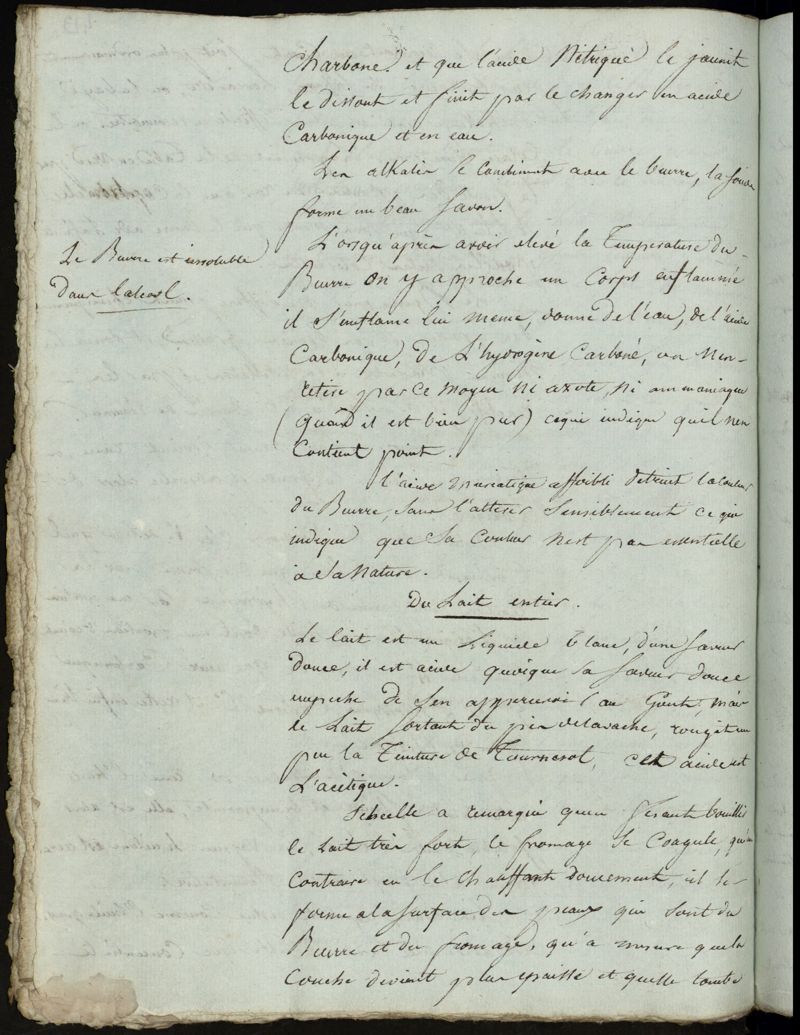 charboné. et que l'acide Nitrique le jaunit
le dissout et finit par le changer en acide
Carbonique et en eau.
Les alkalis se combinent avec le beurre, la soude
forme un beau savon.
Le Beurre est insoluble
dans l'alcool.
L'orsqu'après avoir elevé la Température du
Beurre on y approche un Corps enflammé
il s'enflame lui meme, donne de l'eau, de l'acide
Carbonique, de L'hydrogène Carboné, on n'en
retire par ce moyen ni azote, ni ammoniaque
(quand il est bien pur) ce qui indique qu'il n'en
Contient point.
l'acide Muriatique affoibli detruit la couleur
du Beurre, sans l'altérer sensiblement ce qui
indique que sa couleur n'est pas essentielle
à sa Nature.
Du Lait entier.
Le lait est un Liquide blanc, d'une saveur
douce, il est acide quoique sa saveur douce
empeche de s'en appercevoir au Gout, mais
le Lait sortant du pis de la vache, rougit un
peu la Teinture de Tournesol, cet acide est
L'acétique.
Scheelle a remarqué qu'en faisant bouillir
le Lait très fort, le fromage se Coagule, qu'au
Contraire en le chauffant doucement, il se
forme a la surface des peaux qui sont du
Beurre et du fromage, qu'a mesure que la
couche devient plus epaisse et quelle tombe